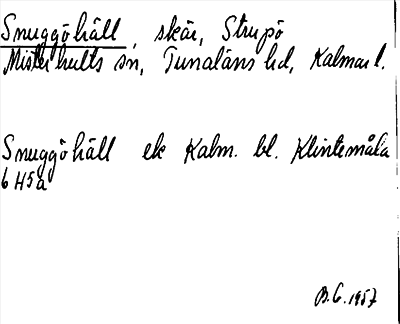 Snuggöhäll, skär, Strupö
Misterhults sn, Tunaläns hd, Kalmar l.
Snuggöhäll ek Kalm. bl. Klintemåla
6 H5a
B.G. 1957